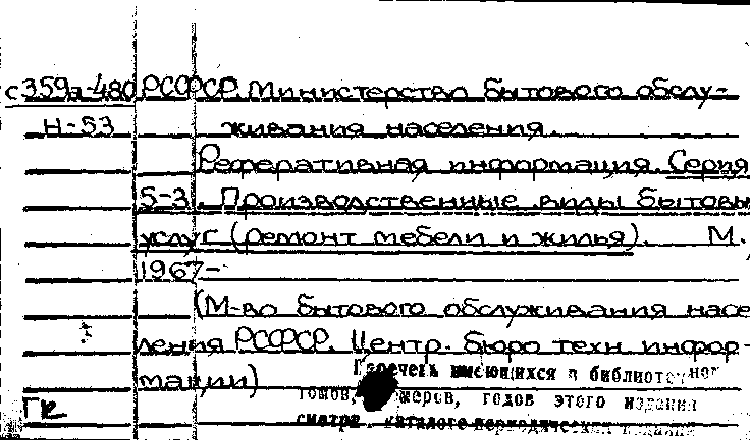 с359а-480 РСФСР. Министерство бытового обслу-
Н-53 живания населения.
Реферативная информация. Серия
5-3. Производственные виды бытовы
услуг (ремонт мебели и жилья). М.,
1967-
(М-во бытового обслуживания насе
ления РСФСР. Центр. бюро техн. инфор-
мации)
Перечень имеющихся в библиотеке
томов, номеров, годов этого издания
смотри каталоге периодических изданий
ГК